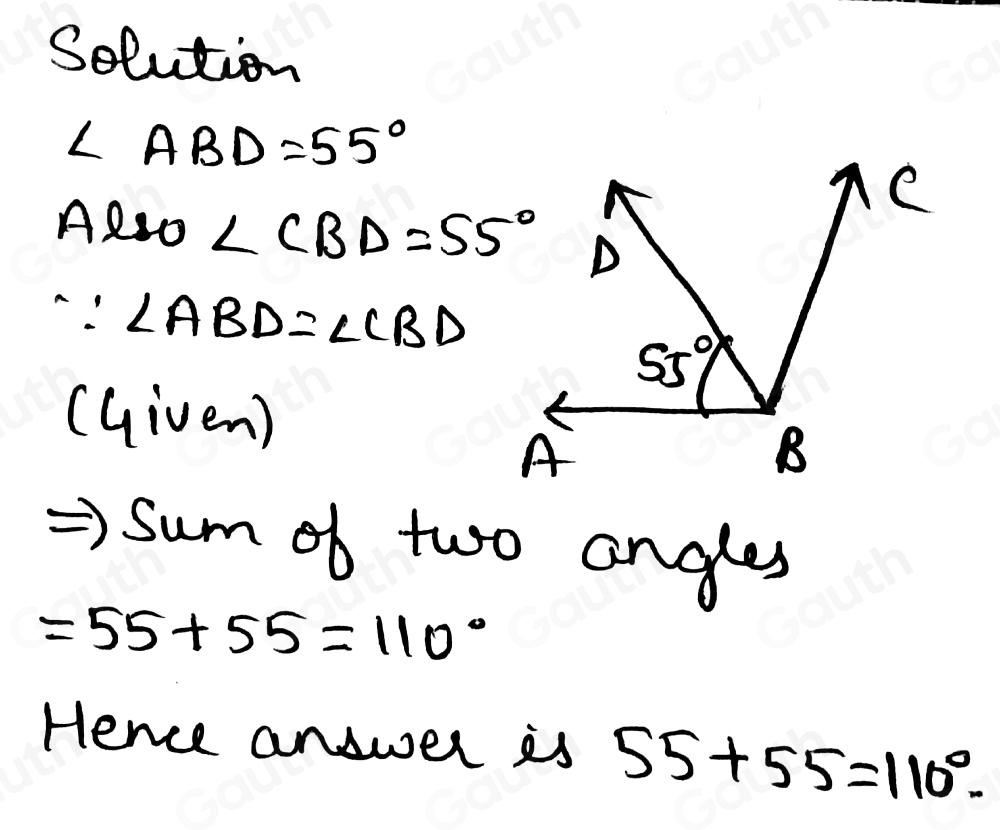 Solution
∠ ABD = 55°
Also ∠ CBD = 55°
∵ ∠ABD = ∠CBD
(Given)
⇒ Sum of two angles
= 55 + 55 = 110°
Hence answer is 55 + 55 = 110°.
D
C
55°
A
B
Gauth